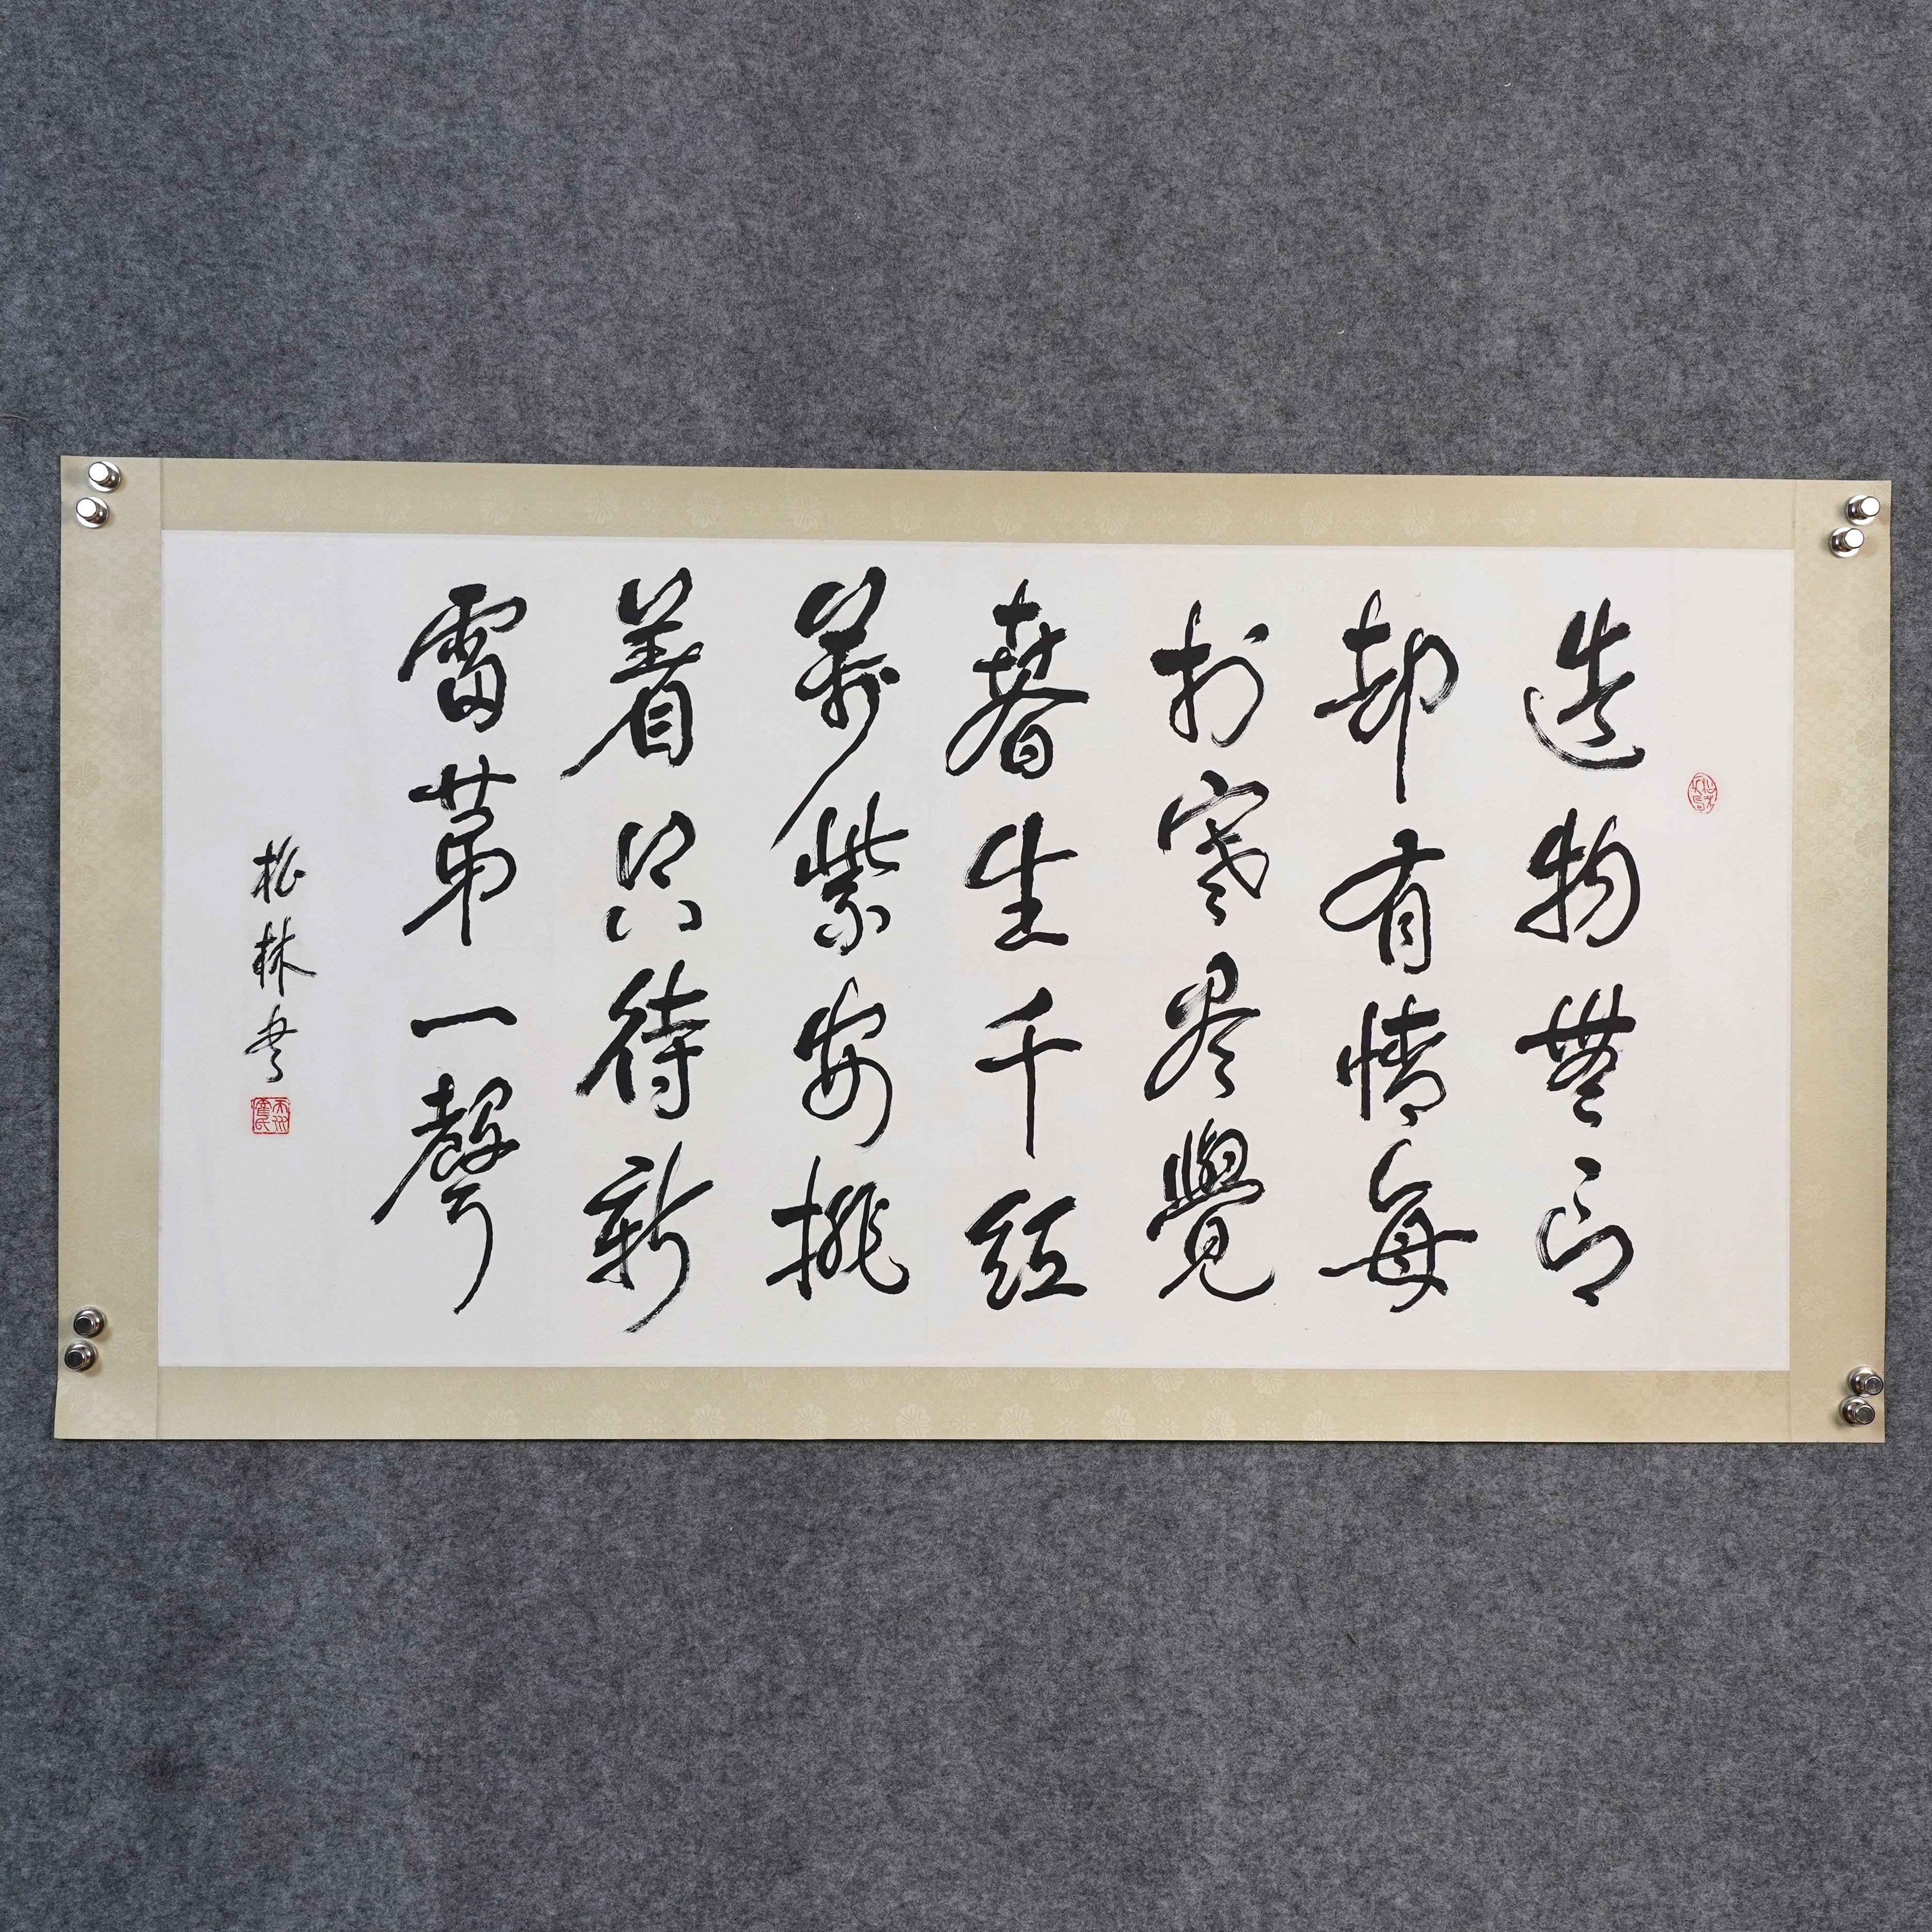 造物無言
却有情每
於寒尽覺
春生千紅
萬紫安排
着只待新
雷第一聲
松林書